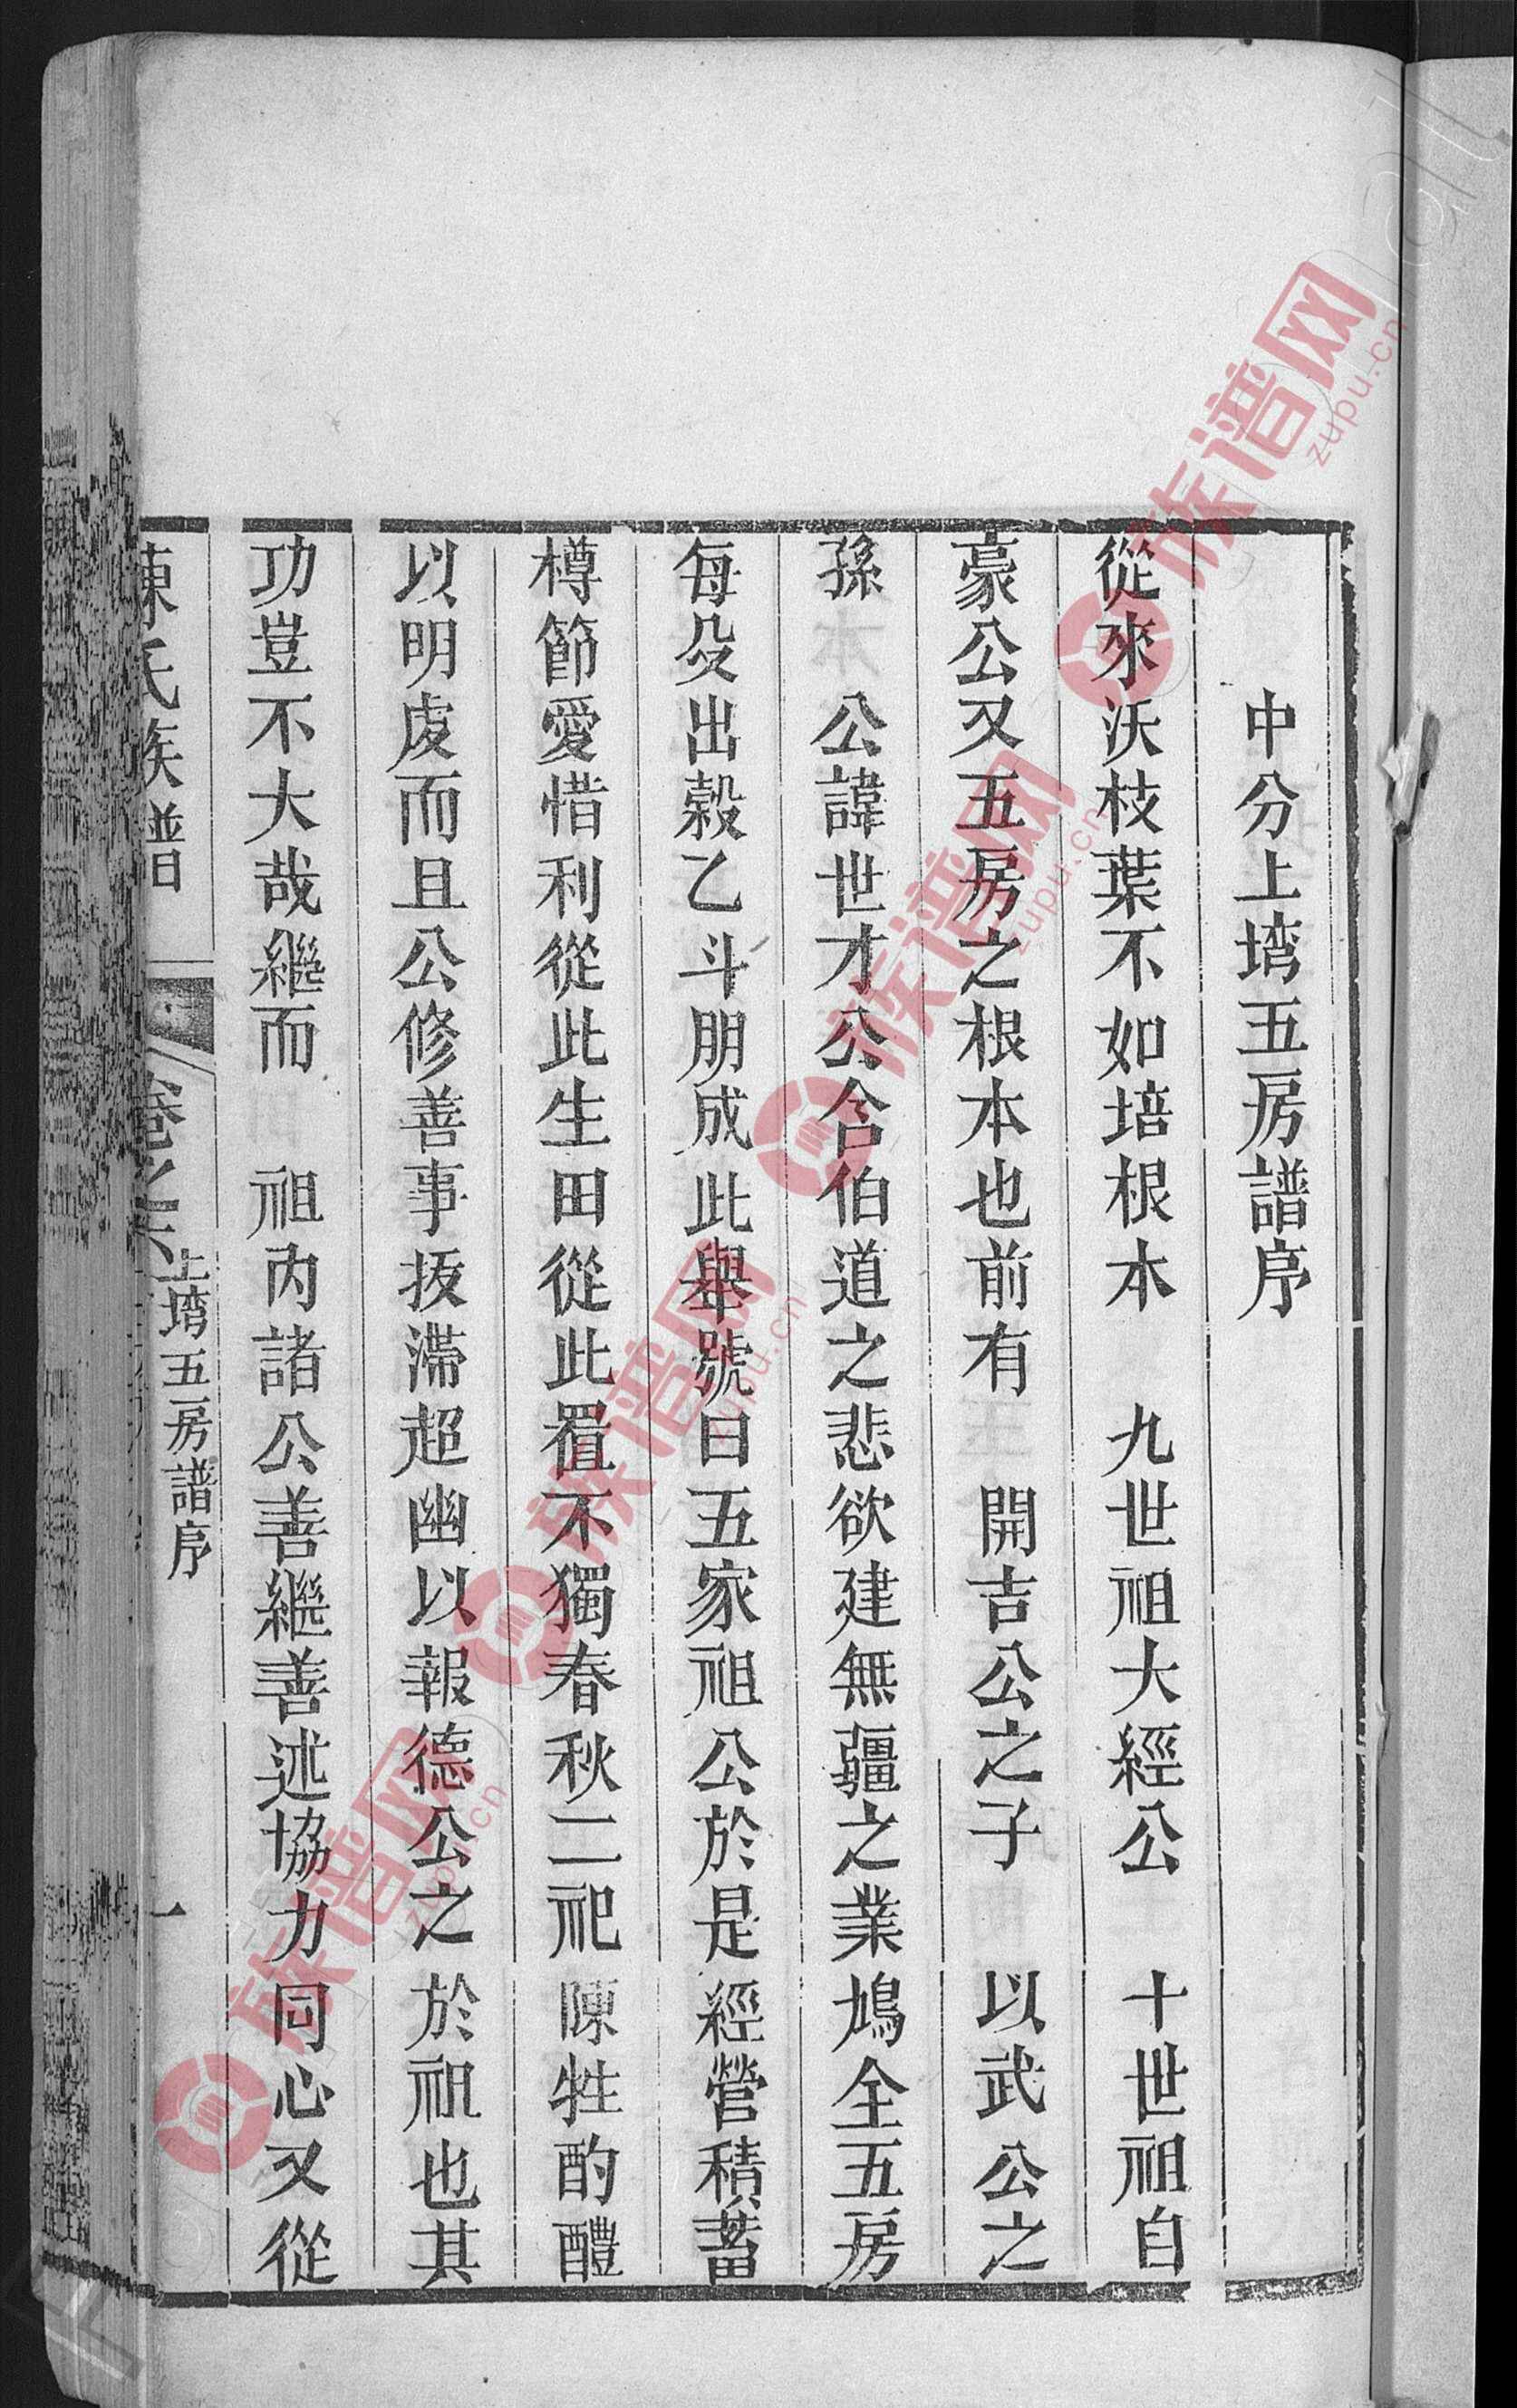 中分上塆五房譜序
從來沃枝葉不如培根本 九世祖大經公 十世祖自
豪公又五房之根本也前有 開吉公之子 以武公之
孫 公諱世才公含伯道之悲欲建無疆之業鳩全五房
每殳出榖乙斗朋成此舉號曰五家祖公於是經營積蓄
樽節愛惜利從此生田從此置不獨春秋二祀陳牲酌醴
以明虔而且公修善事抜滞超幽以報德公之於祖也其
功豈不大哉繼而 祖丙諸公善繼善述協力同心又從
陳氏族譜 卷之六 上塆五房譜序 一
族谱网 zupu.cn
族谱网 zupu.cn
族谱网 zupu.cn
族谱网 zupu.cn